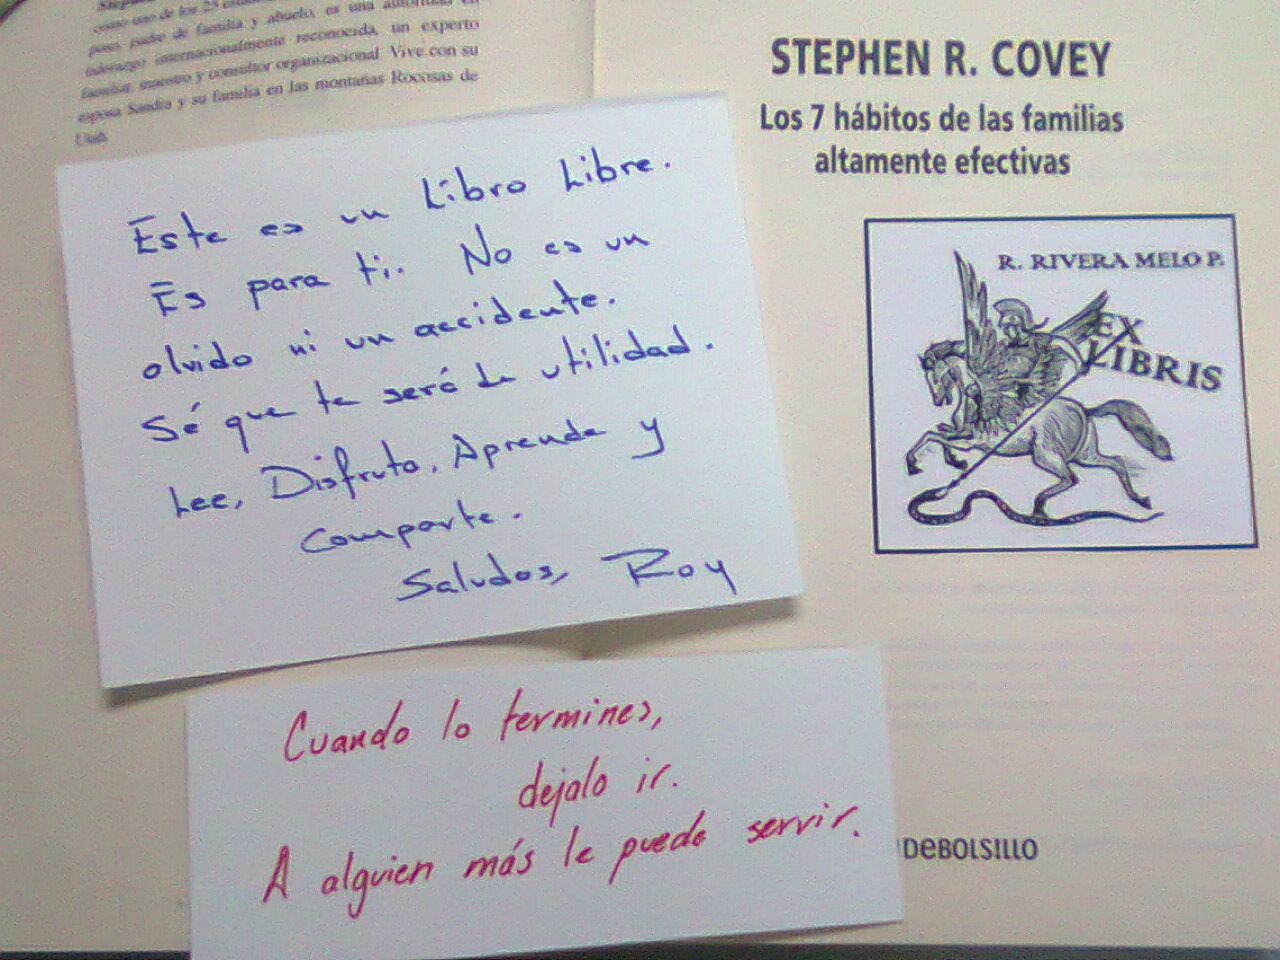 como uno de los 25
poso, padre de familia y abuelo, es una autoridad en
liderazgo internacionalmente reconocida, un experto
familiar, maestro y consultor organizacional. Vive con su
esposa Sandra y su familia en las montañas Rocosas de
Utah.
Este es un Libro Libre.
Es para ti. No es un
olvido ni un accidente.
Sé que te será de utilidad.
Lee, Disfruta, Aprende y
Comparte.
Saludos, Roy
Cuando lo termines,
dejalo ir.
A alguien más le puede servir.
STEPHEN R. COVEY
Los 7 hábitos de las familias
altamente efectivas
R. RIVERA MELO P.
EX
LIBRIS
DEBOLS!LLO